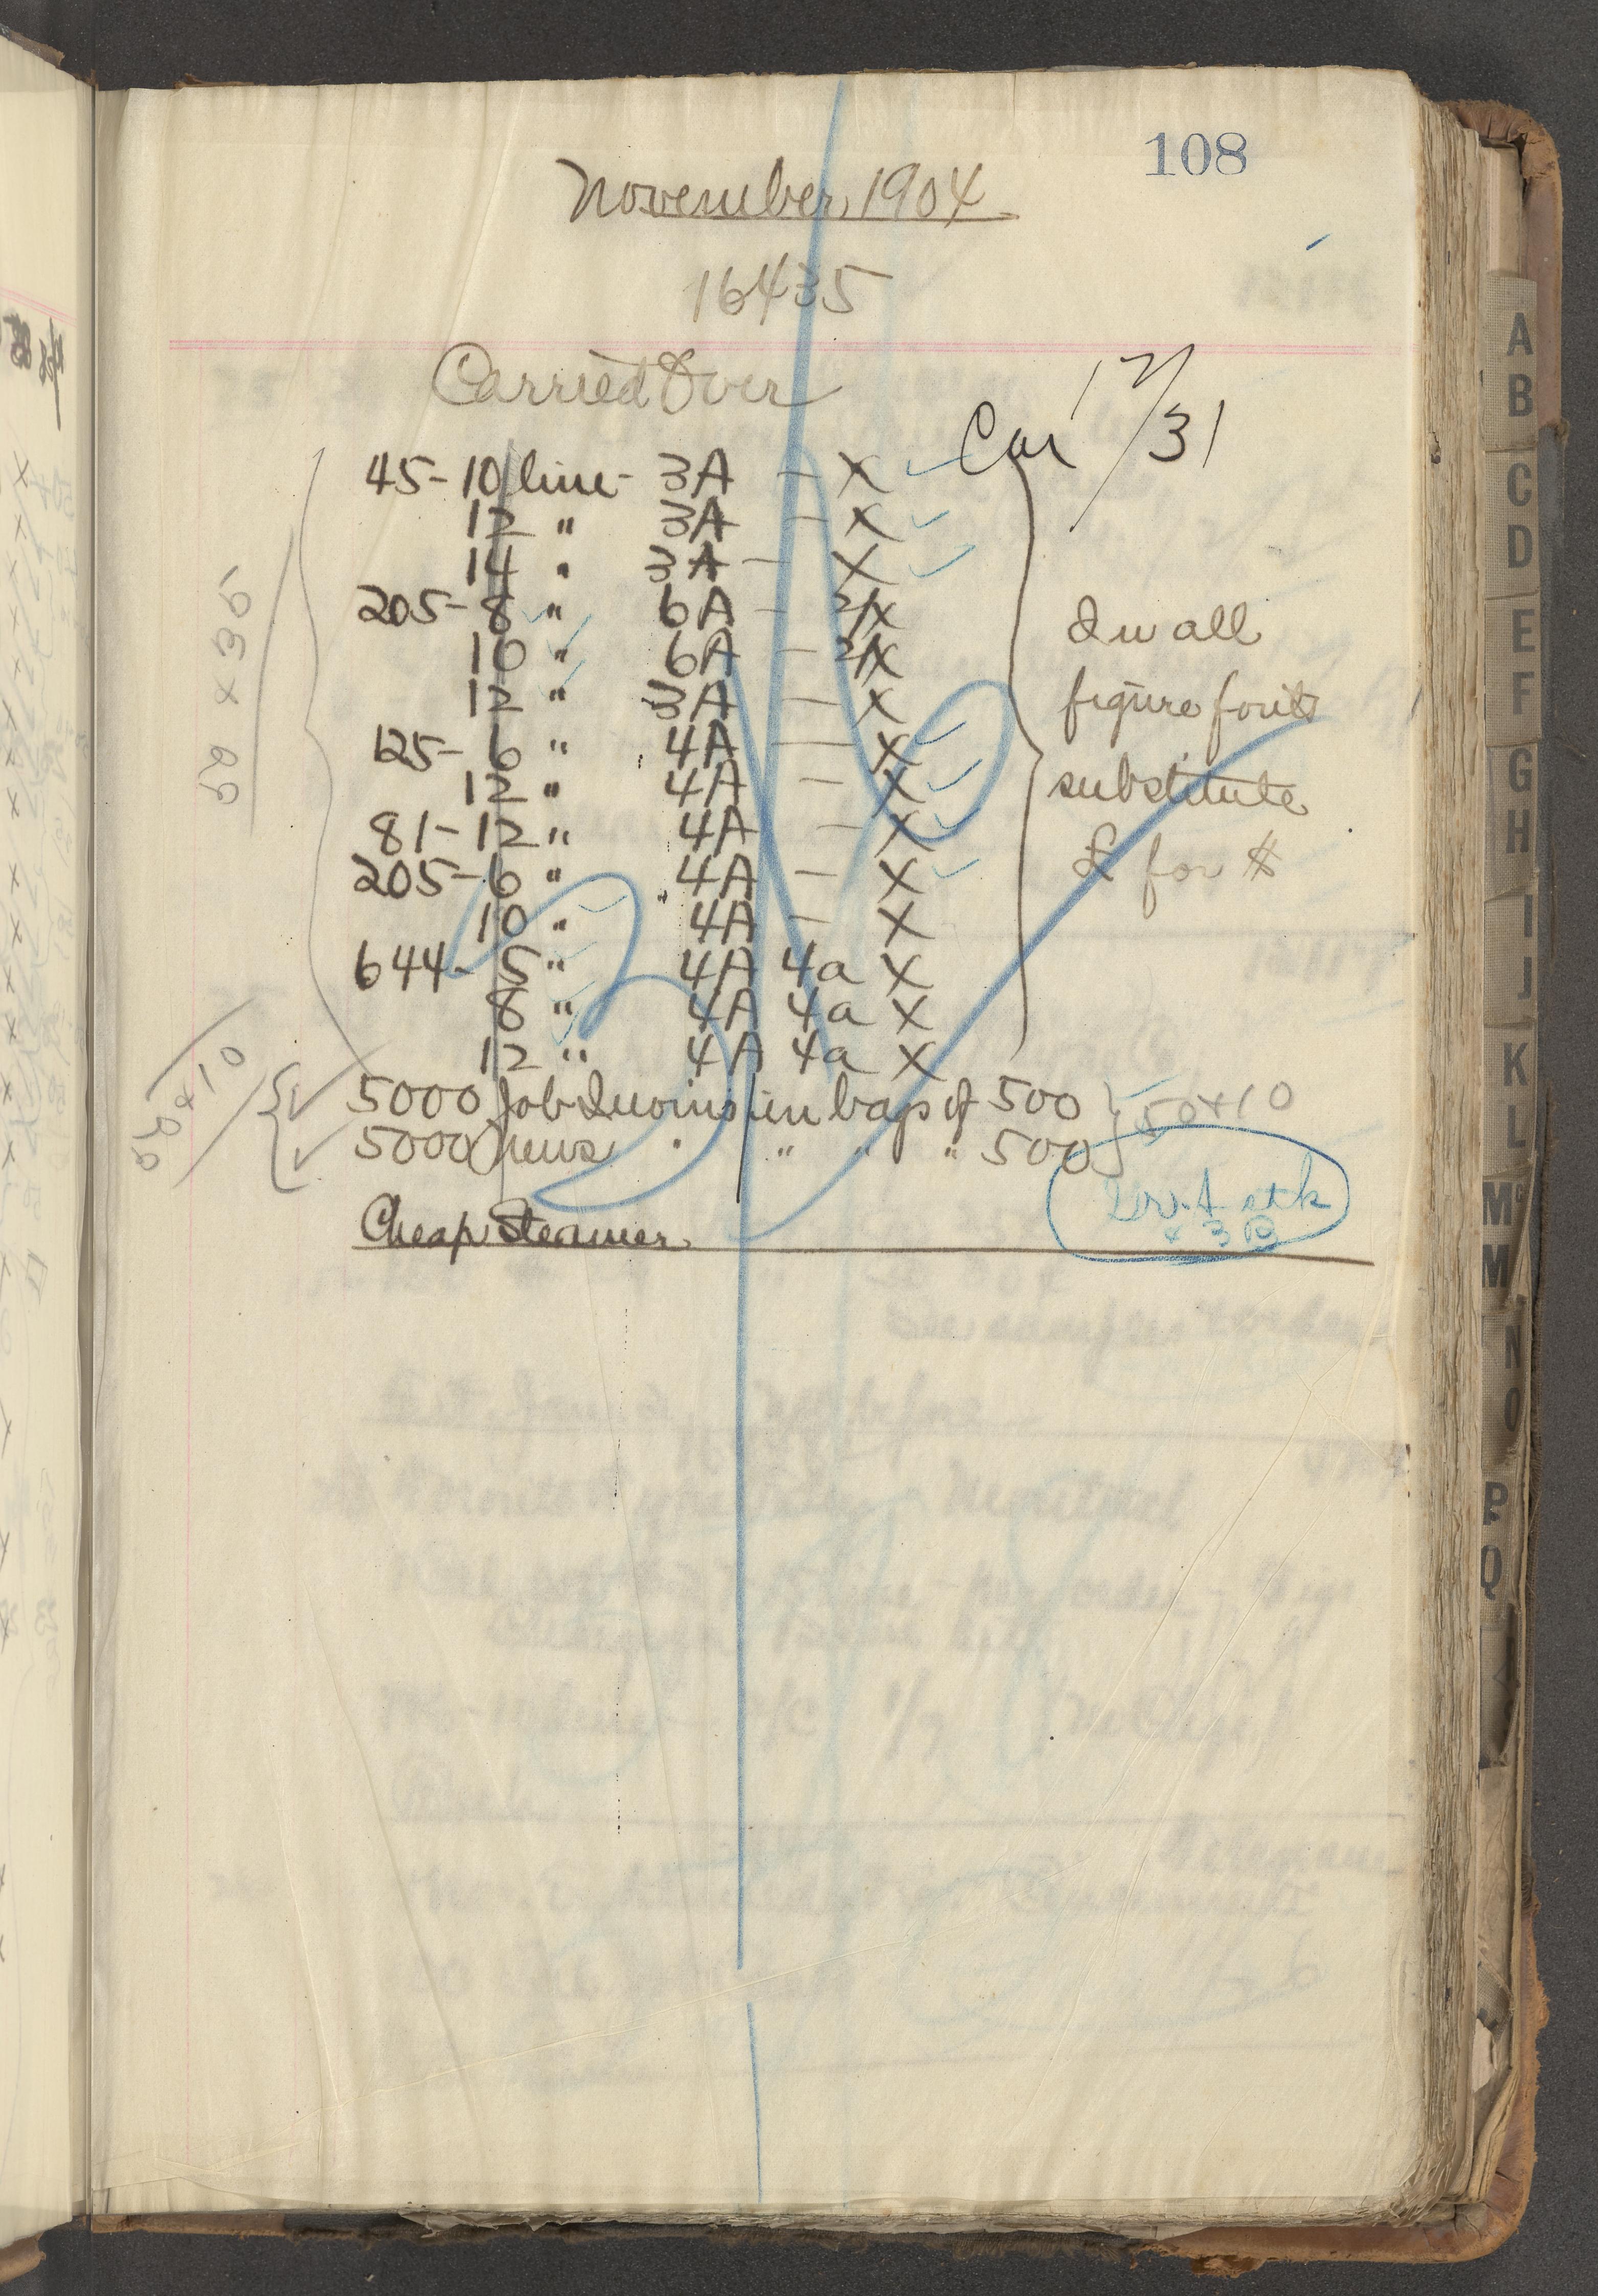 108
November 1904
16435
Carried Over
Car 12/31
45-10 line- 3A - X
12 " 3A - X
14 " 3A - X
205-8 " 6A - 2/X
10 " 6A - 2/X
12 " 3A - X
125-6 " 4A - X
12 " 4A - X
81-12 " 4A - X
205-6 " 4A - X
10 " 4A - X
644-5 " 4A 4a X
8 " 4A 4a X
12 " 4A 4a X
In all
figure fonts
substitute
£ for $
5000 Job Quoins in bags of 500
5000 News " " " " 500
50x10
Cheap Steamer
x 3 B
A
B
C
D
E
F
G
H
I
J
K
L
Mc
M
N
O
P
Q